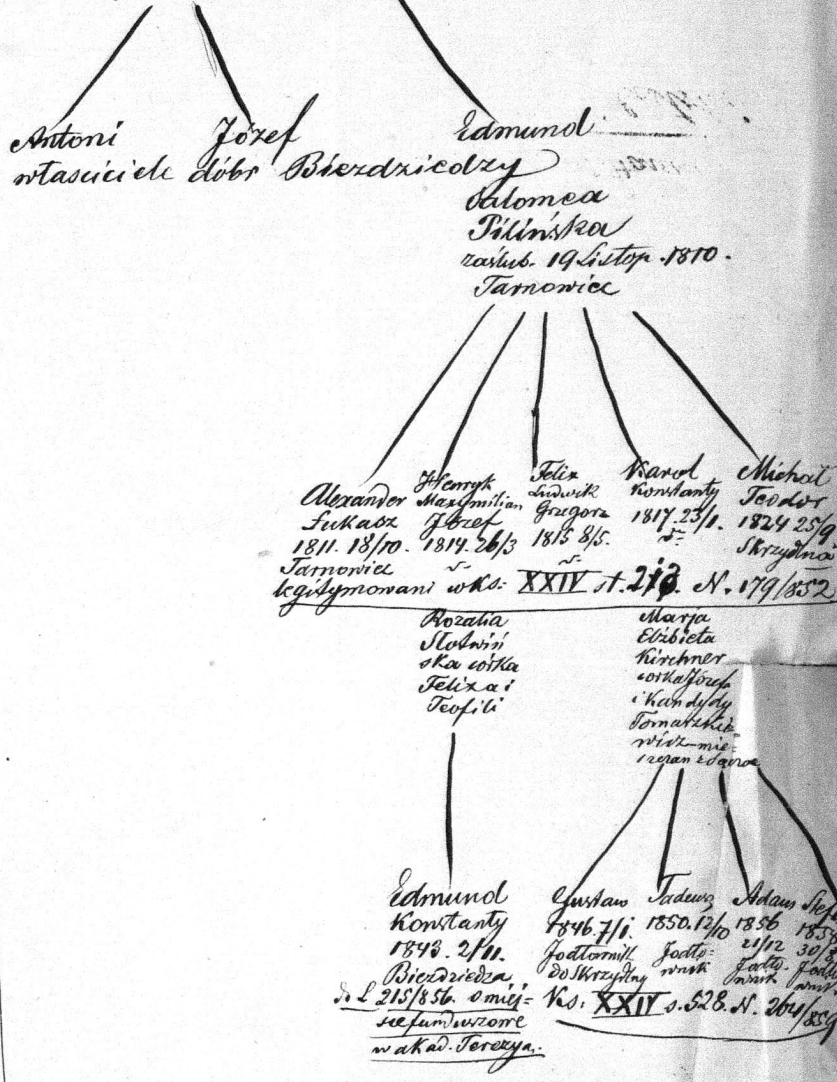 Antoni Józef Edmund
właściciele dóbr Biezdziedzy
Salomea
Pilińska
zaślub. 19 Listop. 1810.
Tarnowiec
Alexander
Łukasz
1811. 18/10.
Tarnowiec
Henryk
Maxymilian
Józef
1814. 26/3
Felix
Ludwik
Grzegorz
1815 8/5.
Karol
Konstanty
1817. 23/1.
Michał
Teodor
1824 25/9
Skrzydlna
legitymowani w Ks: XXIV st. N. 179/852
Rozalia
Słotwiń
ska córka
Felixa i
Teofili
Marja
Elżbieta
Kirchner
córka Józefa
i Kandydy
Tomaszkie-
wicz mie-
szczan z
Edmund
Konstanty
1843. 2/11.
Biezdziedza
do L 215/856. o miej-
sce funduszowe
w akad. Terezya.
Gustaw
1846. 7/1.
Jodłownik
do Skrzydlny
Tadeusz
1850. 12/10
Jodło-
wnik
Adam
1856
21/12
Jodło-
wnik
Stef
30/8
Jodło
wnik
Ks: XXIV s. 528. N. 264/859